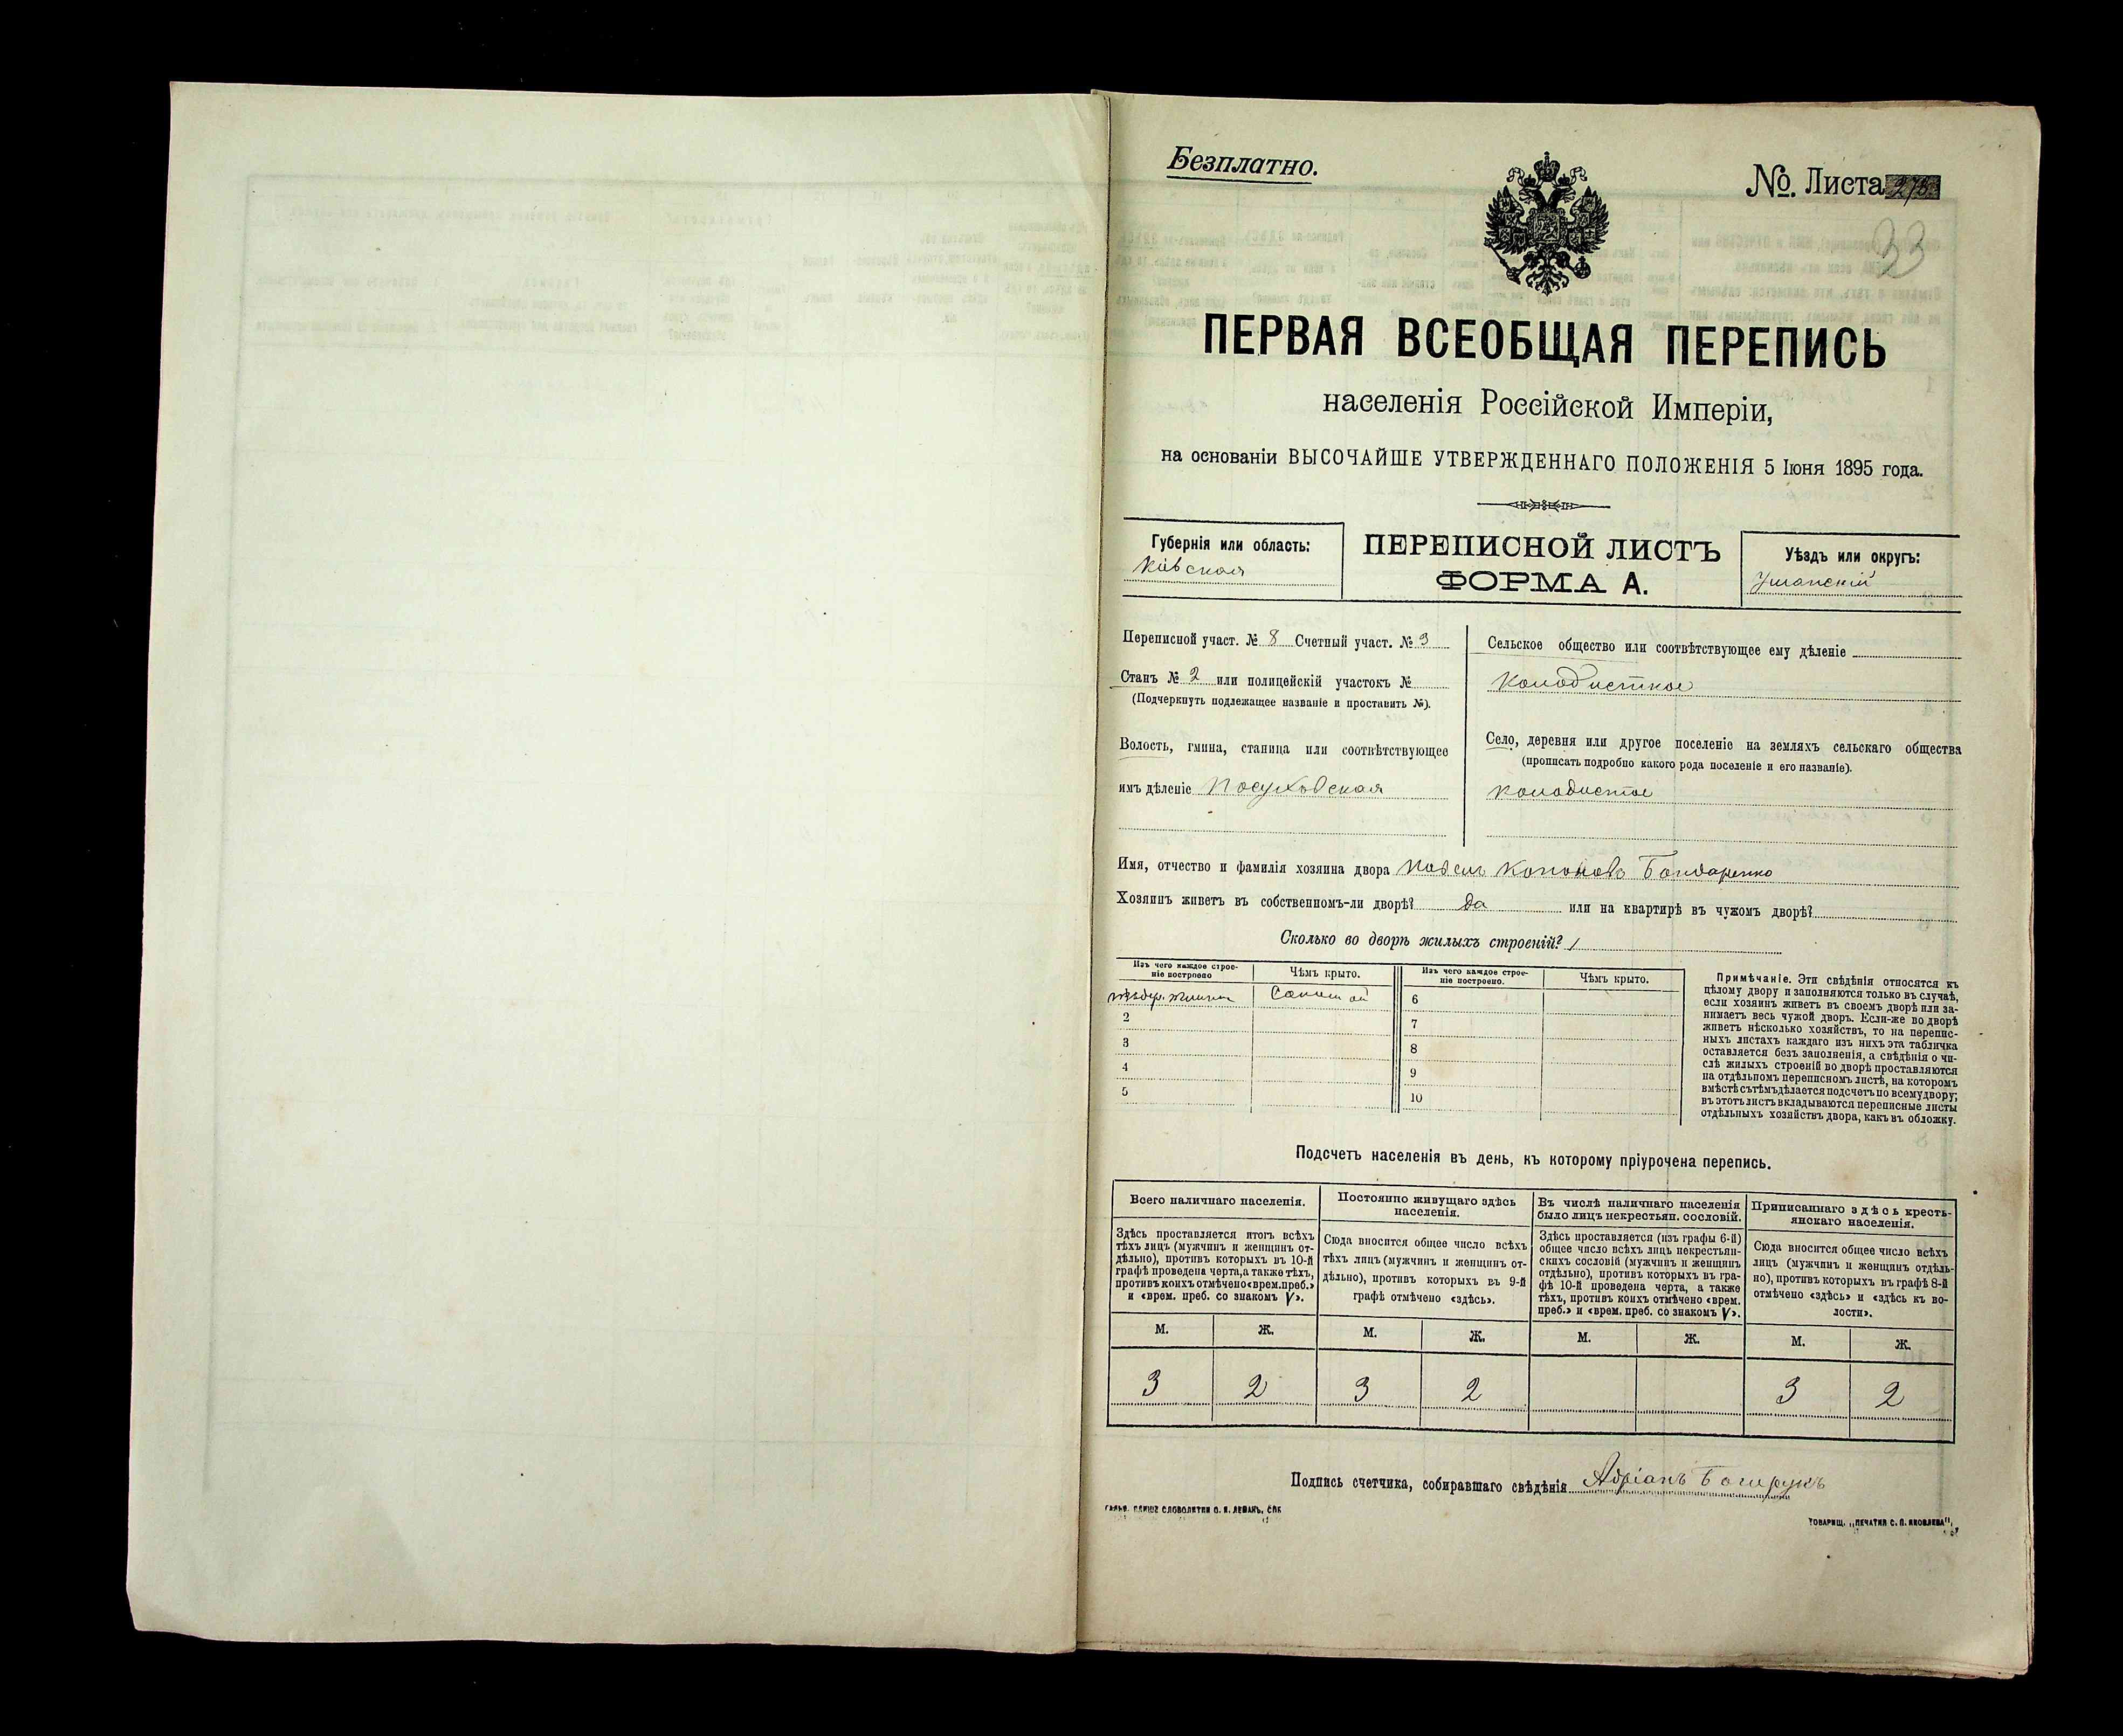 Безплатно.
№. Листа 278
33
ПЕРВАЯ ВСЕОБЩАЯ ПЕРЕПИСЬ
населенія Россійской Имперіи,
на основаніи ВЫСОЧАЙШЕ УТВЕРЖДЕННАГО ПОЛОЖЕНІЯ 5 Іюня 1895 года.
Губернія или область:
Кіевская
ПЕРЕПИСНОЙ ЛИСТЪ
ФОРМА А.
Уѣздъ или округъ:
Уманскій
Переписной участ. № 8 Счетный участ. № 3
Станъ № 2 или полицейскій участокъ №
(Подчеркнуть подлежащее названіе и проставить №).
Волость, гмина, станица или соотвѣтствующее
имъ дѣленіе Посуховская
Сельское общество или соотвѣтствующее ему дѣленіе
Колодисткое
Село, деревня или другое поселеніе на земляхъ сельскаго общества
(прописать подробно какого рода поселеніе и его названіе).
Колодистое
Имя, отчество и фамилія хозяина двора Павелъ Кононовъ Бондаренко
Хозяинъ живетъ въ собственномъ-ли дворѣ? да или на квартирѣ въ чужомъ дворѣ?
Сколько во дворѣ жилыхъ строеній? 1
Изъ чего каждое строе-
ніе построено
Чѣмъ крыто.
Изъ чего каждое строе-
ніе построено.
Чѣмъ крыто.
Соломой
2
3
4
5
6
7
8
9
10
Примѣчаніе. Эти свѣдѣнія относятся къ
цѣлому двору и заполняются только въ случаѣ,
если хозяинъ живетъ въ своемъ дворѣ или за-
нимаетъ весь чужой дворъ. Если-же во дворѣ
живетъ нѣсколько хозяйствъ, то на перепис-
ныхъ листахъ каждаго изъ нихъ эта табличка
оставляется безъ заполненія, а свѣдѣнія о чи-
слѣ жилыхъ строеній во дворѣ проставляются
на отдѣльномъ переписномъ листѣ, на которомъ
вмѣстѣ съ тѣмъ дѣлается подсчетъ по всему двору;
въ этотъ листъ вкладываются переписные листы
отдѣльныхъ хозяйствъ двора, какъ въ обложку.
Подсчетъ населенія въ день, къ которому пріурочена перепись.
Всего наличнаго населенія.
Здѣсь проставляется итогъ всѣхъ
тѣхъ лицъ (мужчинъ и женщинъ от-
дѣльно), противъ которыхъ въ 10-й
графѣ проведена черта, а также тѣхъ,
противъ коихъ отмѣчено «врем. преб.»
и «врем. преб. со знакомъ V».
Постоянно живущаго здѣсь
населенія.
Сюда вносится общее число всѣхъ
тѣхъ лицъ (мужчинъ и женщинъ от-
дѣльно), противъ которыхъ въ 9-й
графѣ отмѣчено «здѣсь».
Въ числѣ наличнаго населенія
было лицъ некрестьян. сословій.
Здѣсь проставляется (изъ графы 6-й)
общее число всѣхъ лицъ некрестьян-
скихъ сословій (мужчинъ и женщинъ
отдѣльно), противъ которыхъ въ гра-
фѣ 10-й проведена черта, а также
тѣхъ, противъ коихъ отмѣчено «врем.
преб.» и «врем. преб. со знакомъ V».
Приписаннаго здѣсь кресть-
янскаго населенія.
Сюда вносится общее число всѣхъ
лицъ (мужчинъ и женщинъ отдѣль-
но), противъ которыхъ въ графѣ 8-й
отмѣчено «здѣсь» и «здѣсь къ во-
лости».
М. Ж. М. Ж. М. Ж. М. Ж.
3 2 3 2 3 2
Подпись счетчика, собиравшаго свѣдѣнія Адріанъ
ГАЛЬВ. КЛИШЕ СЛОВОЛИТНИ О. И. ЛЕМАНЪ, СПБ
ТОВАРИЩ. „ПЕЧАТНЯ С. П. ЯКОВЛЕВА".